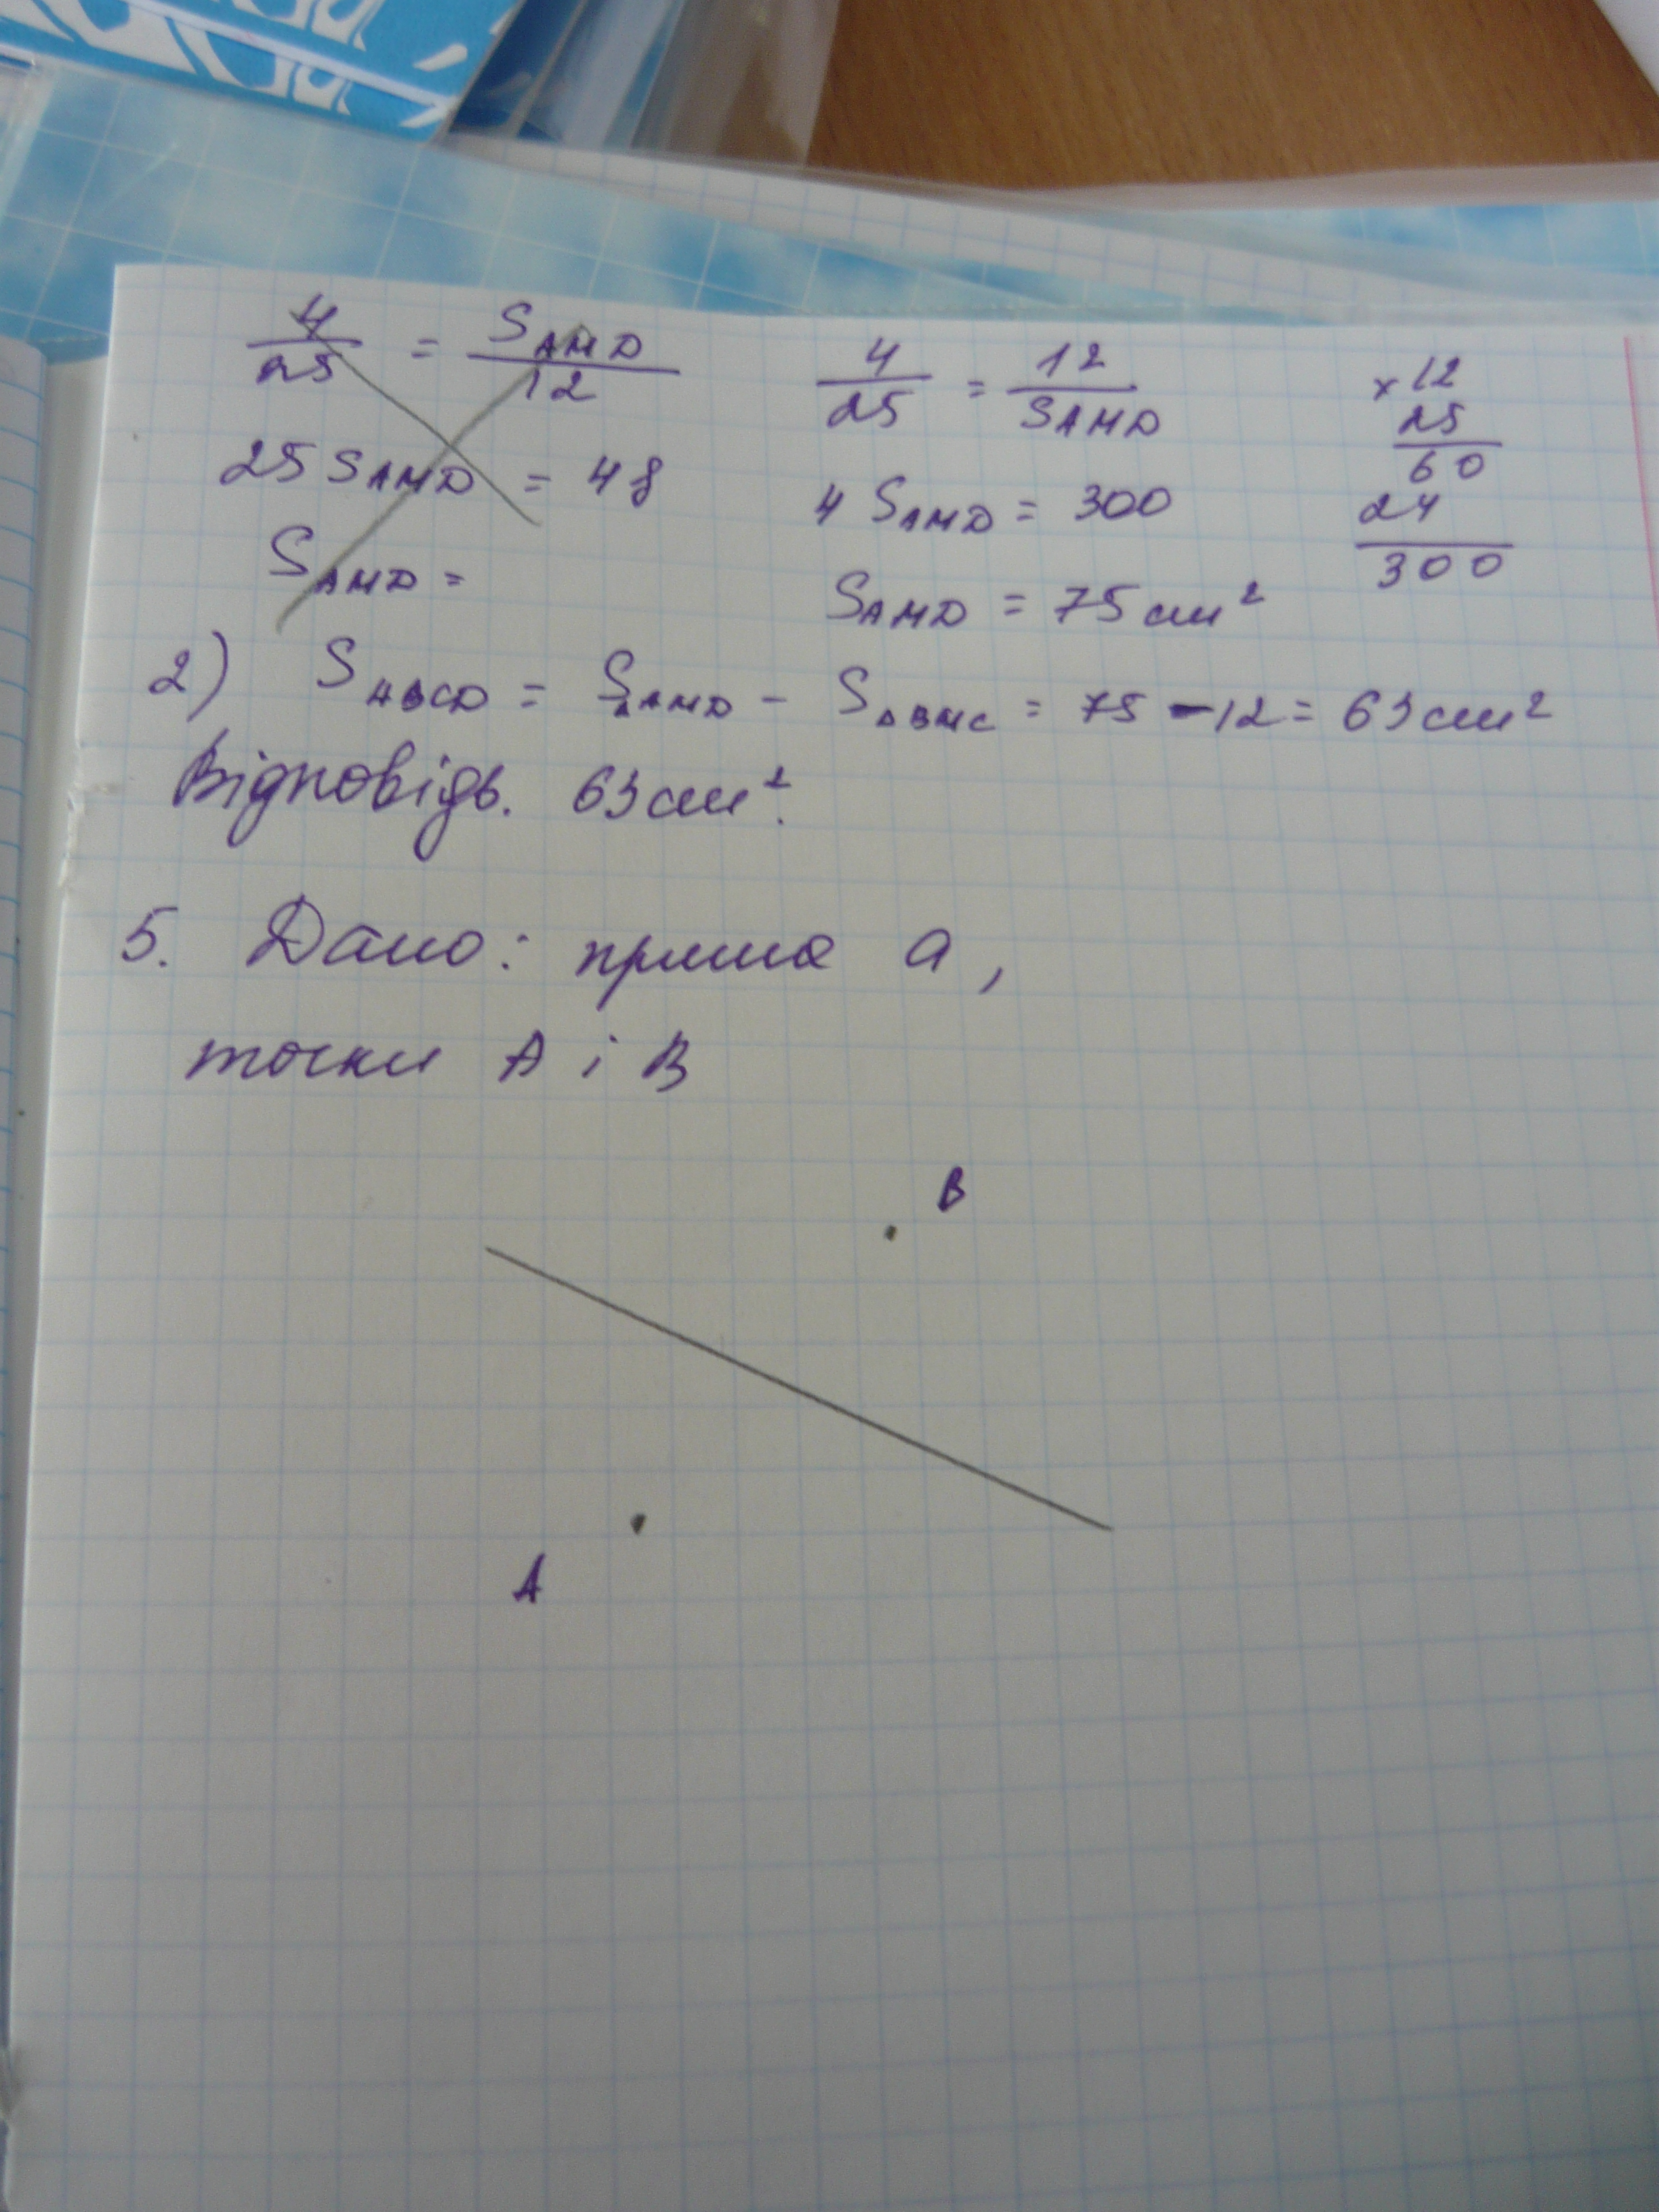 4/25 = S_AMD/12
25 S_AMD = 48
S_AMD =
4/25 = 12/S_AMD
4 S_AMD = 300
S_AMD = 75 см²
× 12
25
60
24
300
2) S_ABCD = S_ΔAMD - S_ΔBMC = 75 - 12 = 63 см²
Відповідь. 63 см².
5. Дано: пряма a,
точки A і B
B
A